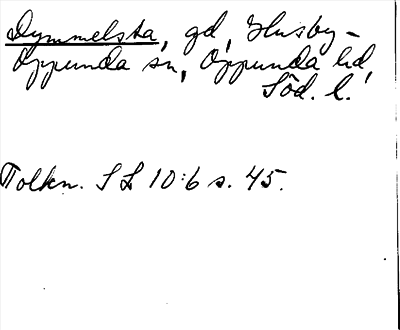 Dymmelsta, gd, Husby-
Oppunda sn, Oppunda hd,
Söd. l.
Tolkn. SL 10:6 s. 45.